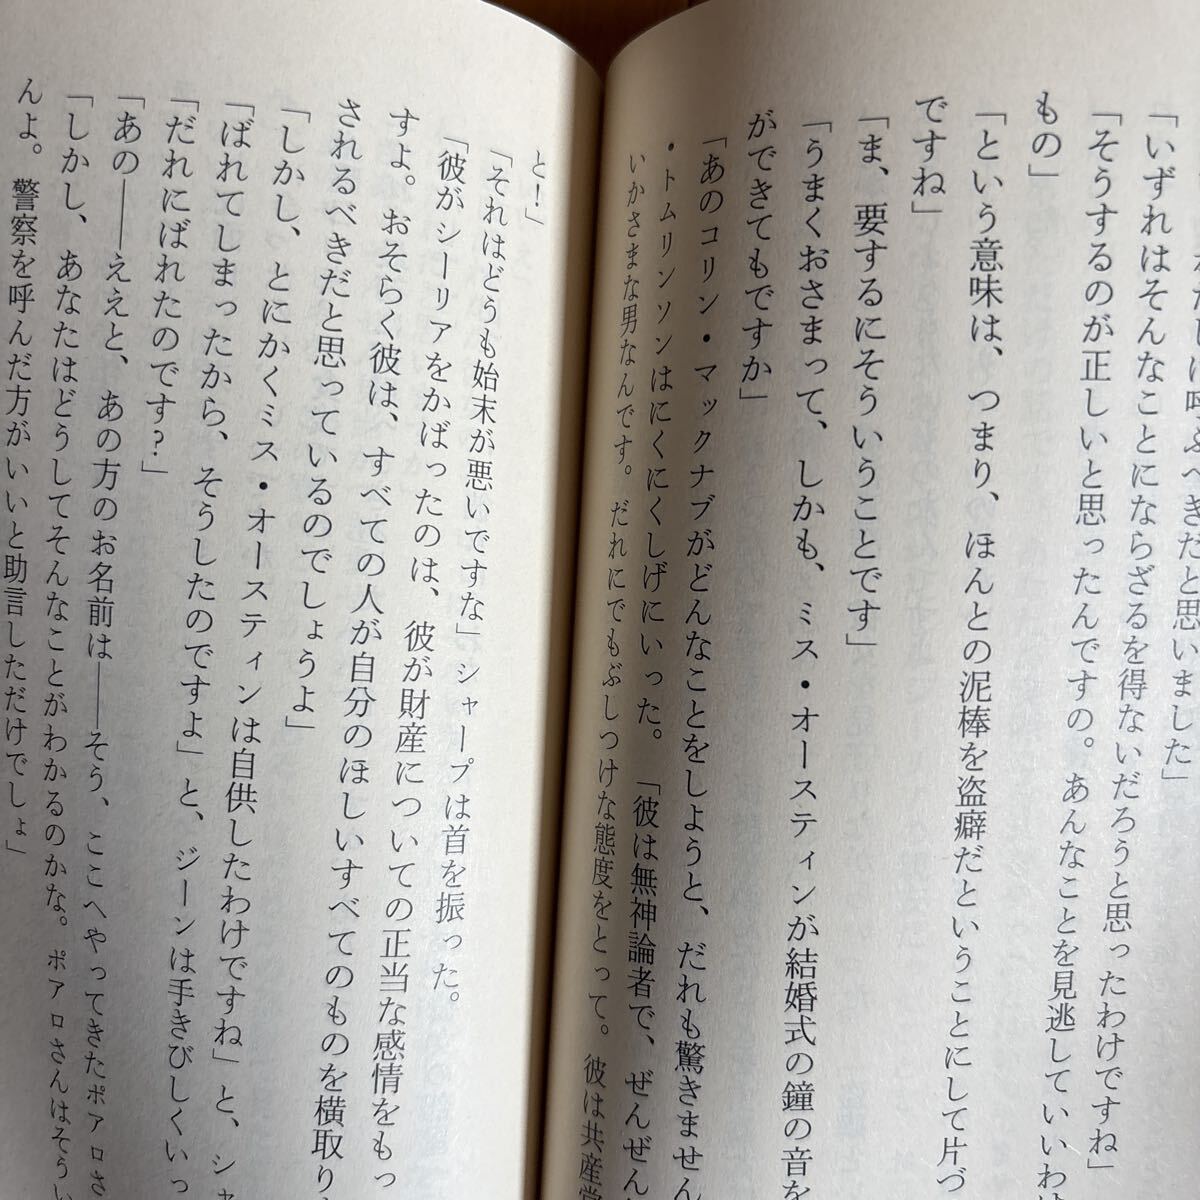 は呼ぶべきだと思いました」
「いずれはそんなことにならざるを得ないだろうと思ったわけですね」
「そうするのが正しいと思ったんですの。あんなことを見逃していいわ
もの」
「という意味は、つまり、ほんとの泥棒を盗癖だということにして片づ
ですね」
「ま、要するにそういうことです」
「うまくおさまって、しかも、ミス・オースティンが結婚式の鐘の音を
ができてもですか」
「あのコリン・マックナブがどんなことをしようと、だれも驚きません
・トムリンソンはにくにくしげにいった。「彼は無神論者で、ぜんぜん
いかさまな男なんです。だれにでもぶしつけな態度をとって。彼は共産党
と！」
「それはどうも始末が悪いですな」シャープは首を振った。
「彼がシーリアをかばったのは、彼が財産についての正当な感情をもっ
すよ。おそらく彼は、すべての人が自分のほしいすべてのものを横取り
されるべきだと思っているのでしょうよ」
「しかし、とにかくミス・オースティンは自供したわけですね」と、シャ
「ばれてしまったから、そうしたのですよ」と、ジーンは手きびしくいっ
「だれにばれたのです？」
「あの――ええと、あの方のお名前は――そう、ここへやってきたポアロさ
「しかし、あなたはどうしてそんなことがわかるのかな。ポアロさんはそうい
んよ。警察を呼んだ方がいいと助言しただけでしょ」